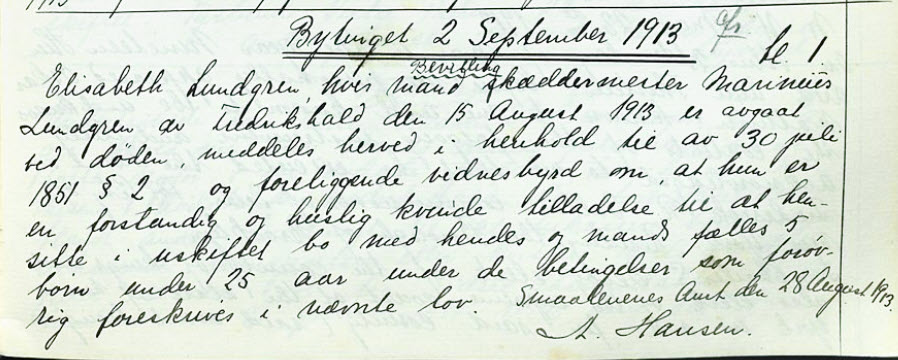 Bytinget 2 September 1913
Bevilling
Elisabeth Lundgren hvis mand skræddermester Marinius
Lundgren av Fredrikshald den 15 August 1913 er avgaat
ved døden, meddeles herved i henhold til av 30 juli
1851 § 2 og foreliggende vidnesbyrd om, at hun er
en forstandig og huslig kvinde tilladelse til at hen-
sitte i uskiftet bo med hendes og mands fælles 5
born under 25 aar under de betingelser som forøv-
rig foreskrives i nævnte lov. Smaalenenes Amt den 28 August 1913.
A. Hansen.